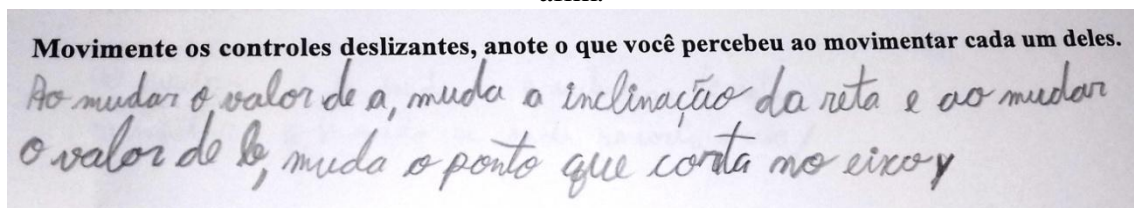 Movimente os controles deslizantes, anote o que você percebeu ao movimentar cada um deles.
Ao mudar o valor de a, muda a inclinação da reta e ao mudar
o valor de b, muda o ponto que corta no eixo y